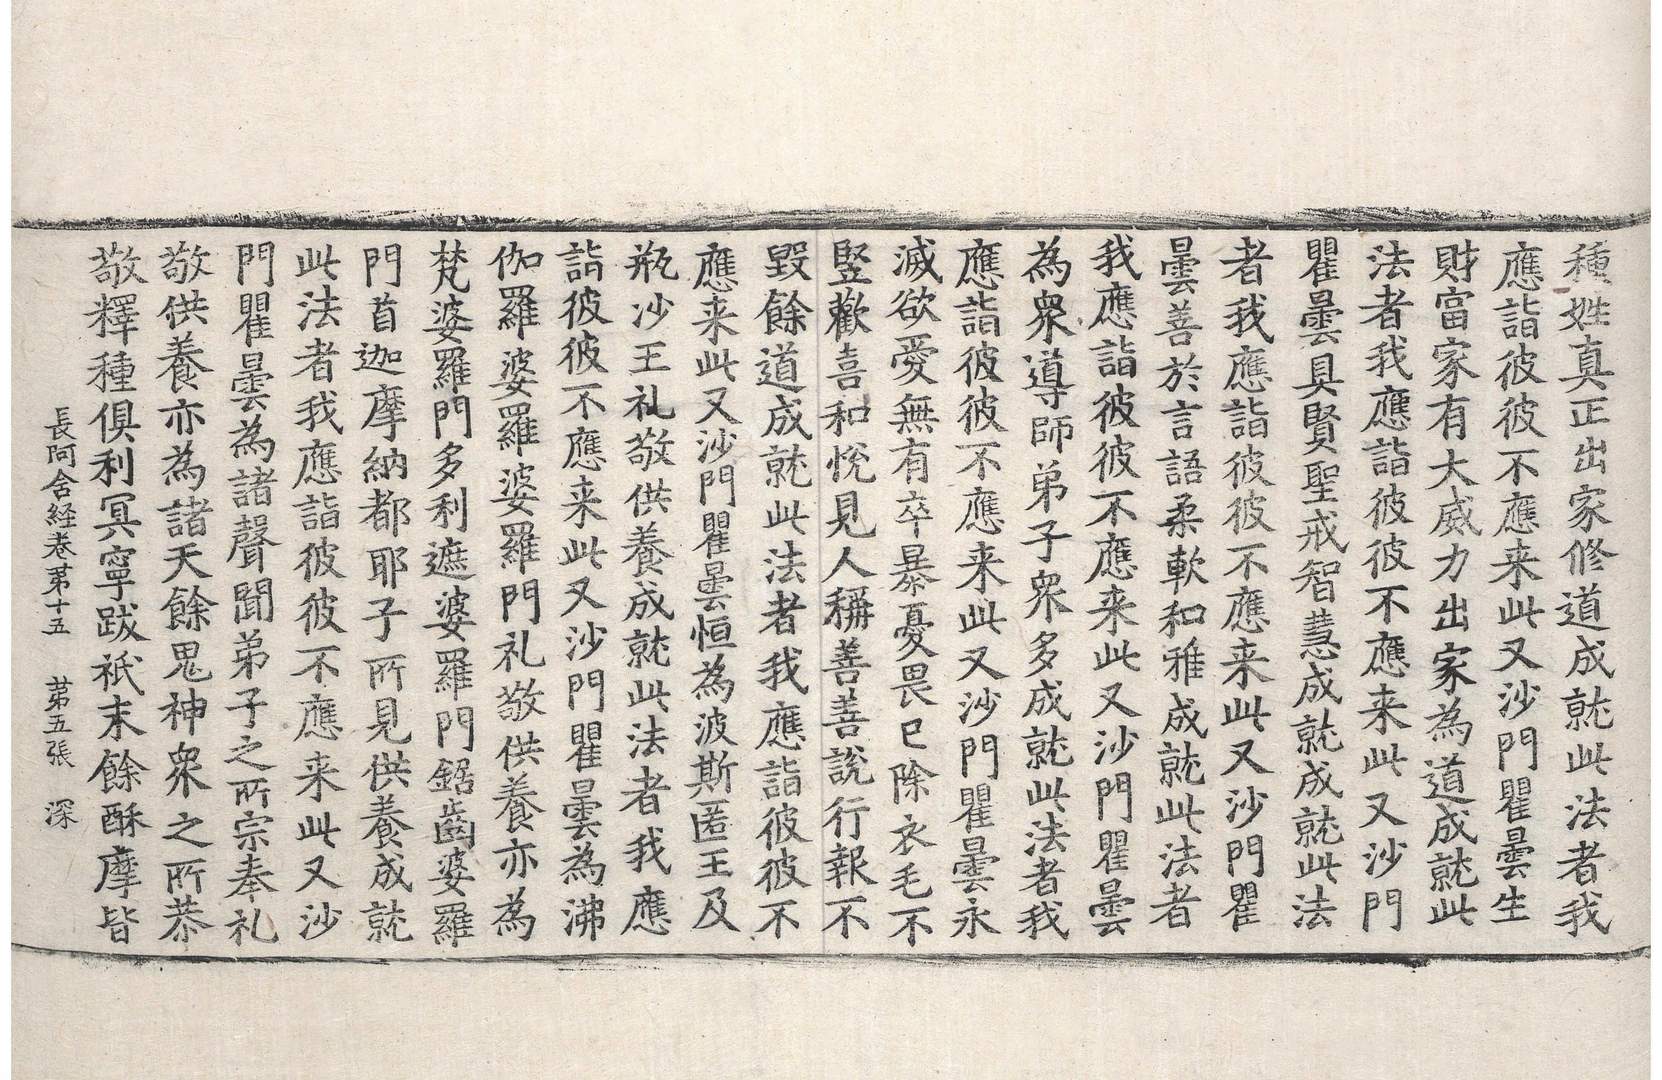 種姓真正出家修道成就此法者我
應詣彼彼不應来此又沙門瞿曇生
財富家有大威力出家為道成就此
法者我應詣彼彼不應来此又沙門
瞿曇具賢聖戒智慧成就成就此法
者我應詣彼彼不應来此又沙門瞿
曇善於言語柔軟和雅成就此法者
我應詣彼彼不應来此又沙門瞿曇
為衆導師弟子衆多成就此法者我
應詣彼彼不應来此又沙門瞿曇永
滅欲愛無有卒暴憂畏已除衣毛不
竪歡喜和恱見人稱善善說行報不
毀餘道成就此法者我應詣彼彼不
應来此又沙門瞿曇恒為波斯匿王及
瓶沙王礼敬供養成就此法者我應
詣彼彼不應来此又沙門瞿曇為沸
伽羅婆羅婆羅門礼敬供養亦為
梵婆羅門多利遮婆羅門鋸齒婆羅
門首迦摩納都耶子所見供養成就
此法者我應詣彼彼不應来此又沙
門瞿曇為諸聲聞弟子之所宗奉礼
敬供養亦為諸天餘鬼神衆之所恭
敬釋種俱利冥寧跋祇末餘酥摩皆
長阿含経卷苐十五　苐五張　深